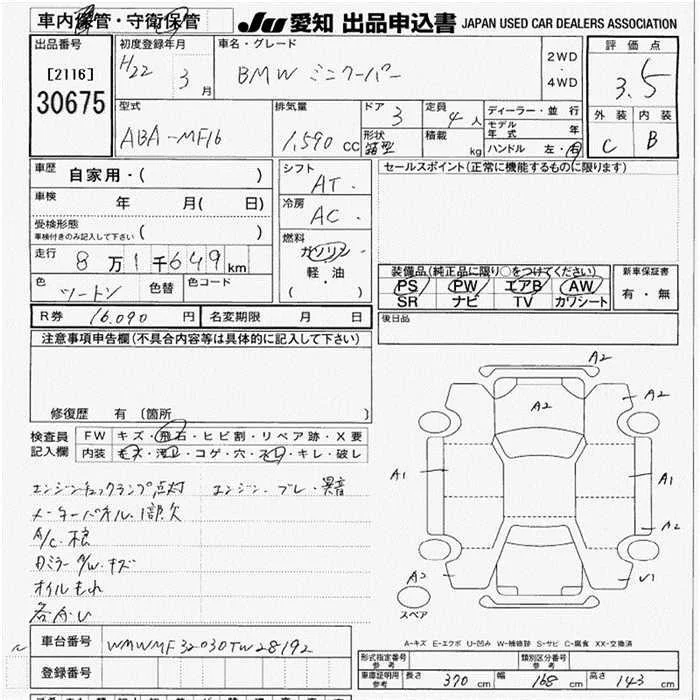 車内保管・守衛保管 JU 愛知 出品申込書 JAPAN USED CAR DEALERS ASSOCIATION
出品番号 初度登録年月 車名・グレード 2WD・4WD 評価点
[2116] H22 3月 BMW ミニクーパー 3.5
30675
型式 排気量 ドア 3 定員 4人 ディーラー・並行 外装 内装
ABA-MF16 1,590 cc 形状 箱型 積載 kg モデル年式 年 C B
ハンドル 左・右
車歴 自家用・( ) シフト AT. セールスポイント(正常に機能するものに限ります)
車検 年 月( 日) 冷房 AC.
受検形態 ( )
車検付きのみ記入して下さい
燃料 ガソリン・
軽・油
( ・ )
走行 8万1千649km 装備品(純正品に限り○をつけてください) 新車保証書
PS PW エアB AW 有・無
SR ナビ TV カワシート
色 ツートン 色替 色コード
R券 16,090 円 名変期限 月 日 後日品
注意事項申告欄(不具合内容等は具体的に記入して下さい)
修復歴 有 〔箇所 〕
検査員記入欄 FW キズ・飛石・ヒビ割・リペア跡・X要
内装 キズ・汚レ・コゲ・穴・スレ・キレ・破レ
エンジンチェックランプ点灯 エンジン・ブレ・異音
メーターパネル1部欠
A/C・
ミラー キズ
オイルもれ
A2
A2
A2
A1
A1
A2
A2
V1
スペア
A-キズ E-エクボ U-凹み W-補修跡 S-サビ C-腐食 XX-交換済
車台番号 WMWMF32030TW28192
登録番号
形式指定番号 参考 類別区分番号 参考
車庫証明用 参考 長さ 370 cm 幅 168 cm 高さ 143 cm